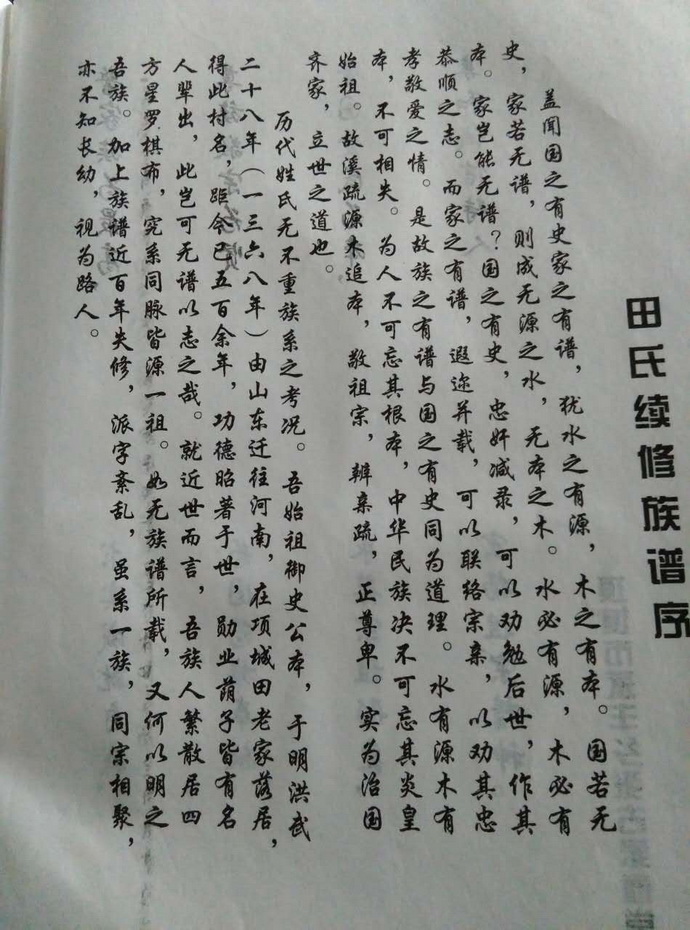 田氏续修族谱序
盖闻国之有史家之有谱，犹水之有源，木之有本。国若无
史，家若无谱，则成无源之水，无本之木。水必有源，木必有
本。家岂能无谱？国之有史，忠奸减录，可以劝勉后世，作其
恭顺之志。而家之有谱，遐迩并载，可以联络宗亲，以劝其忠
孝敬爱之情。是故族之有谱与国之有史同为道理。水有源木有
本，不可相失。为人不可忘其根本，中华民族决不可忘其炎皇
始祖。故溪疏源木追本，敬祖宗，辨亲疏，正尊卑。实为治国
齐家，立世之道也。
历代姓氏无不重族系之考况。吾始祖御史公本，于明洪武
二十八年（一三六八年）由山东迁往河南，在项城田老家落居，
得此村名，距今已五百余年，功德昭著于世，勋业荫子皆有名
人辈出，此岂可无谱以志之哉。就近世而言，吾族人繁散居四
方星罗棋布，究系同脉皆源一祖。如无族谱所载，又何以明之
吾族。加上族谱近百年失修，派字紊乱，虽系一族，同宗相聚，
亦不知长幼，视为路人。